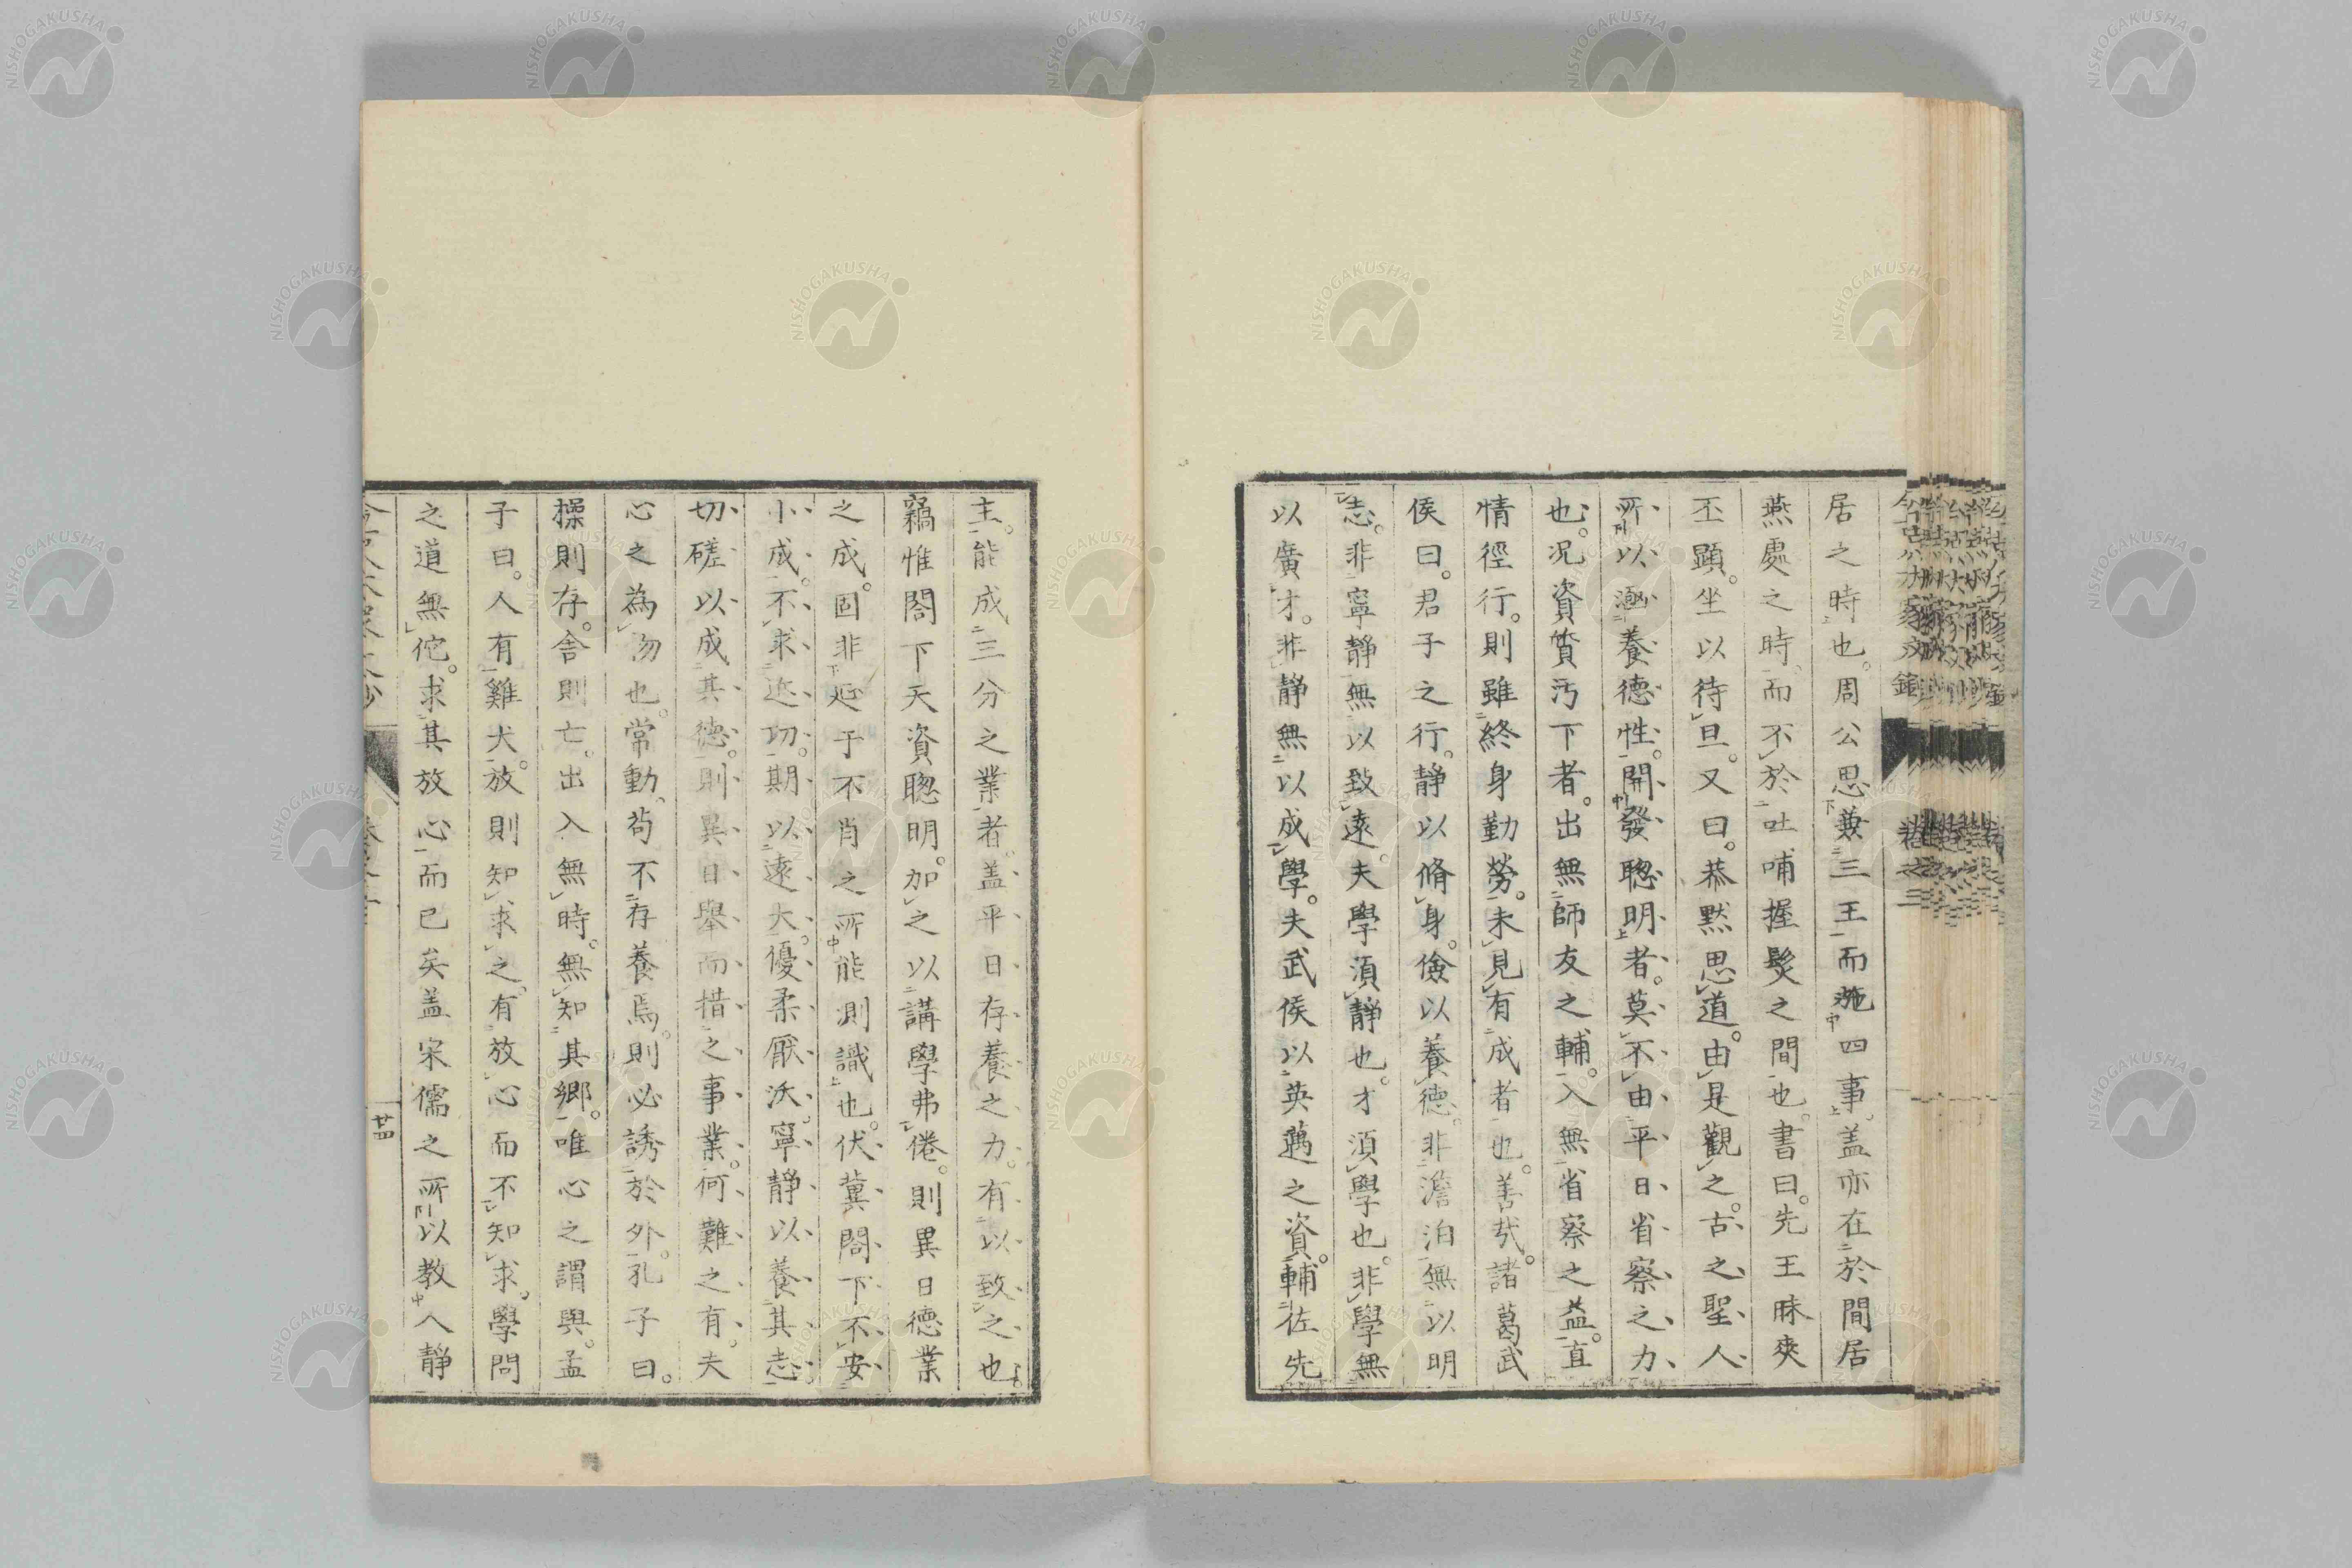 居之時也。周公思兼三王而施四事。盖亦在於間居
燕處之時、而不於吐哺握髮之間也。書曰。先王昧爽
丕顯。坐以待旦。又曰。恭默思道。由是觀之。古之聖人
所以涵養德性。開發聰明者。莫不由平日省察之力
也。况資質汚下者。出無師友之輔。入無省察之益。直
情徑行。則雖終身勤勞。未見有成者也。善哉。諸葛武
侯曰。君子之行。靜以脩身。儉以養德。非澹泊無以明
志。非寧靜無以致遠。夫學須靜也。才須學也。非學無
以廣才。非靜無以成學。夫武侯以英邁之資。輔佐先
主。能成三分之業者。盖平日存養之力。有以致之也。
竊惟閤下天資聰明。加之以講學弗倦。則異日德業
之成。固非㢟于不肖之所能測識也。伏冀閤下不安
小成。不求近功。期以遠大。優柔厭沃。寧靜以養其志
切磋以成其德。則異日舉而措之事業。何難之有。夫
心之為物也。常動。苟不存養焉。則必誘於外。孔子曰。
操則存。舍則亡。出入無時。無知其鄉。唯心之謂與。孟
子曰。人有雞犬。放則知求之。有放心而不知求。學問
之道無佗。求其放心而已矣盖宋儒之所以教人靜
廿四
NISHOGAKUSHA